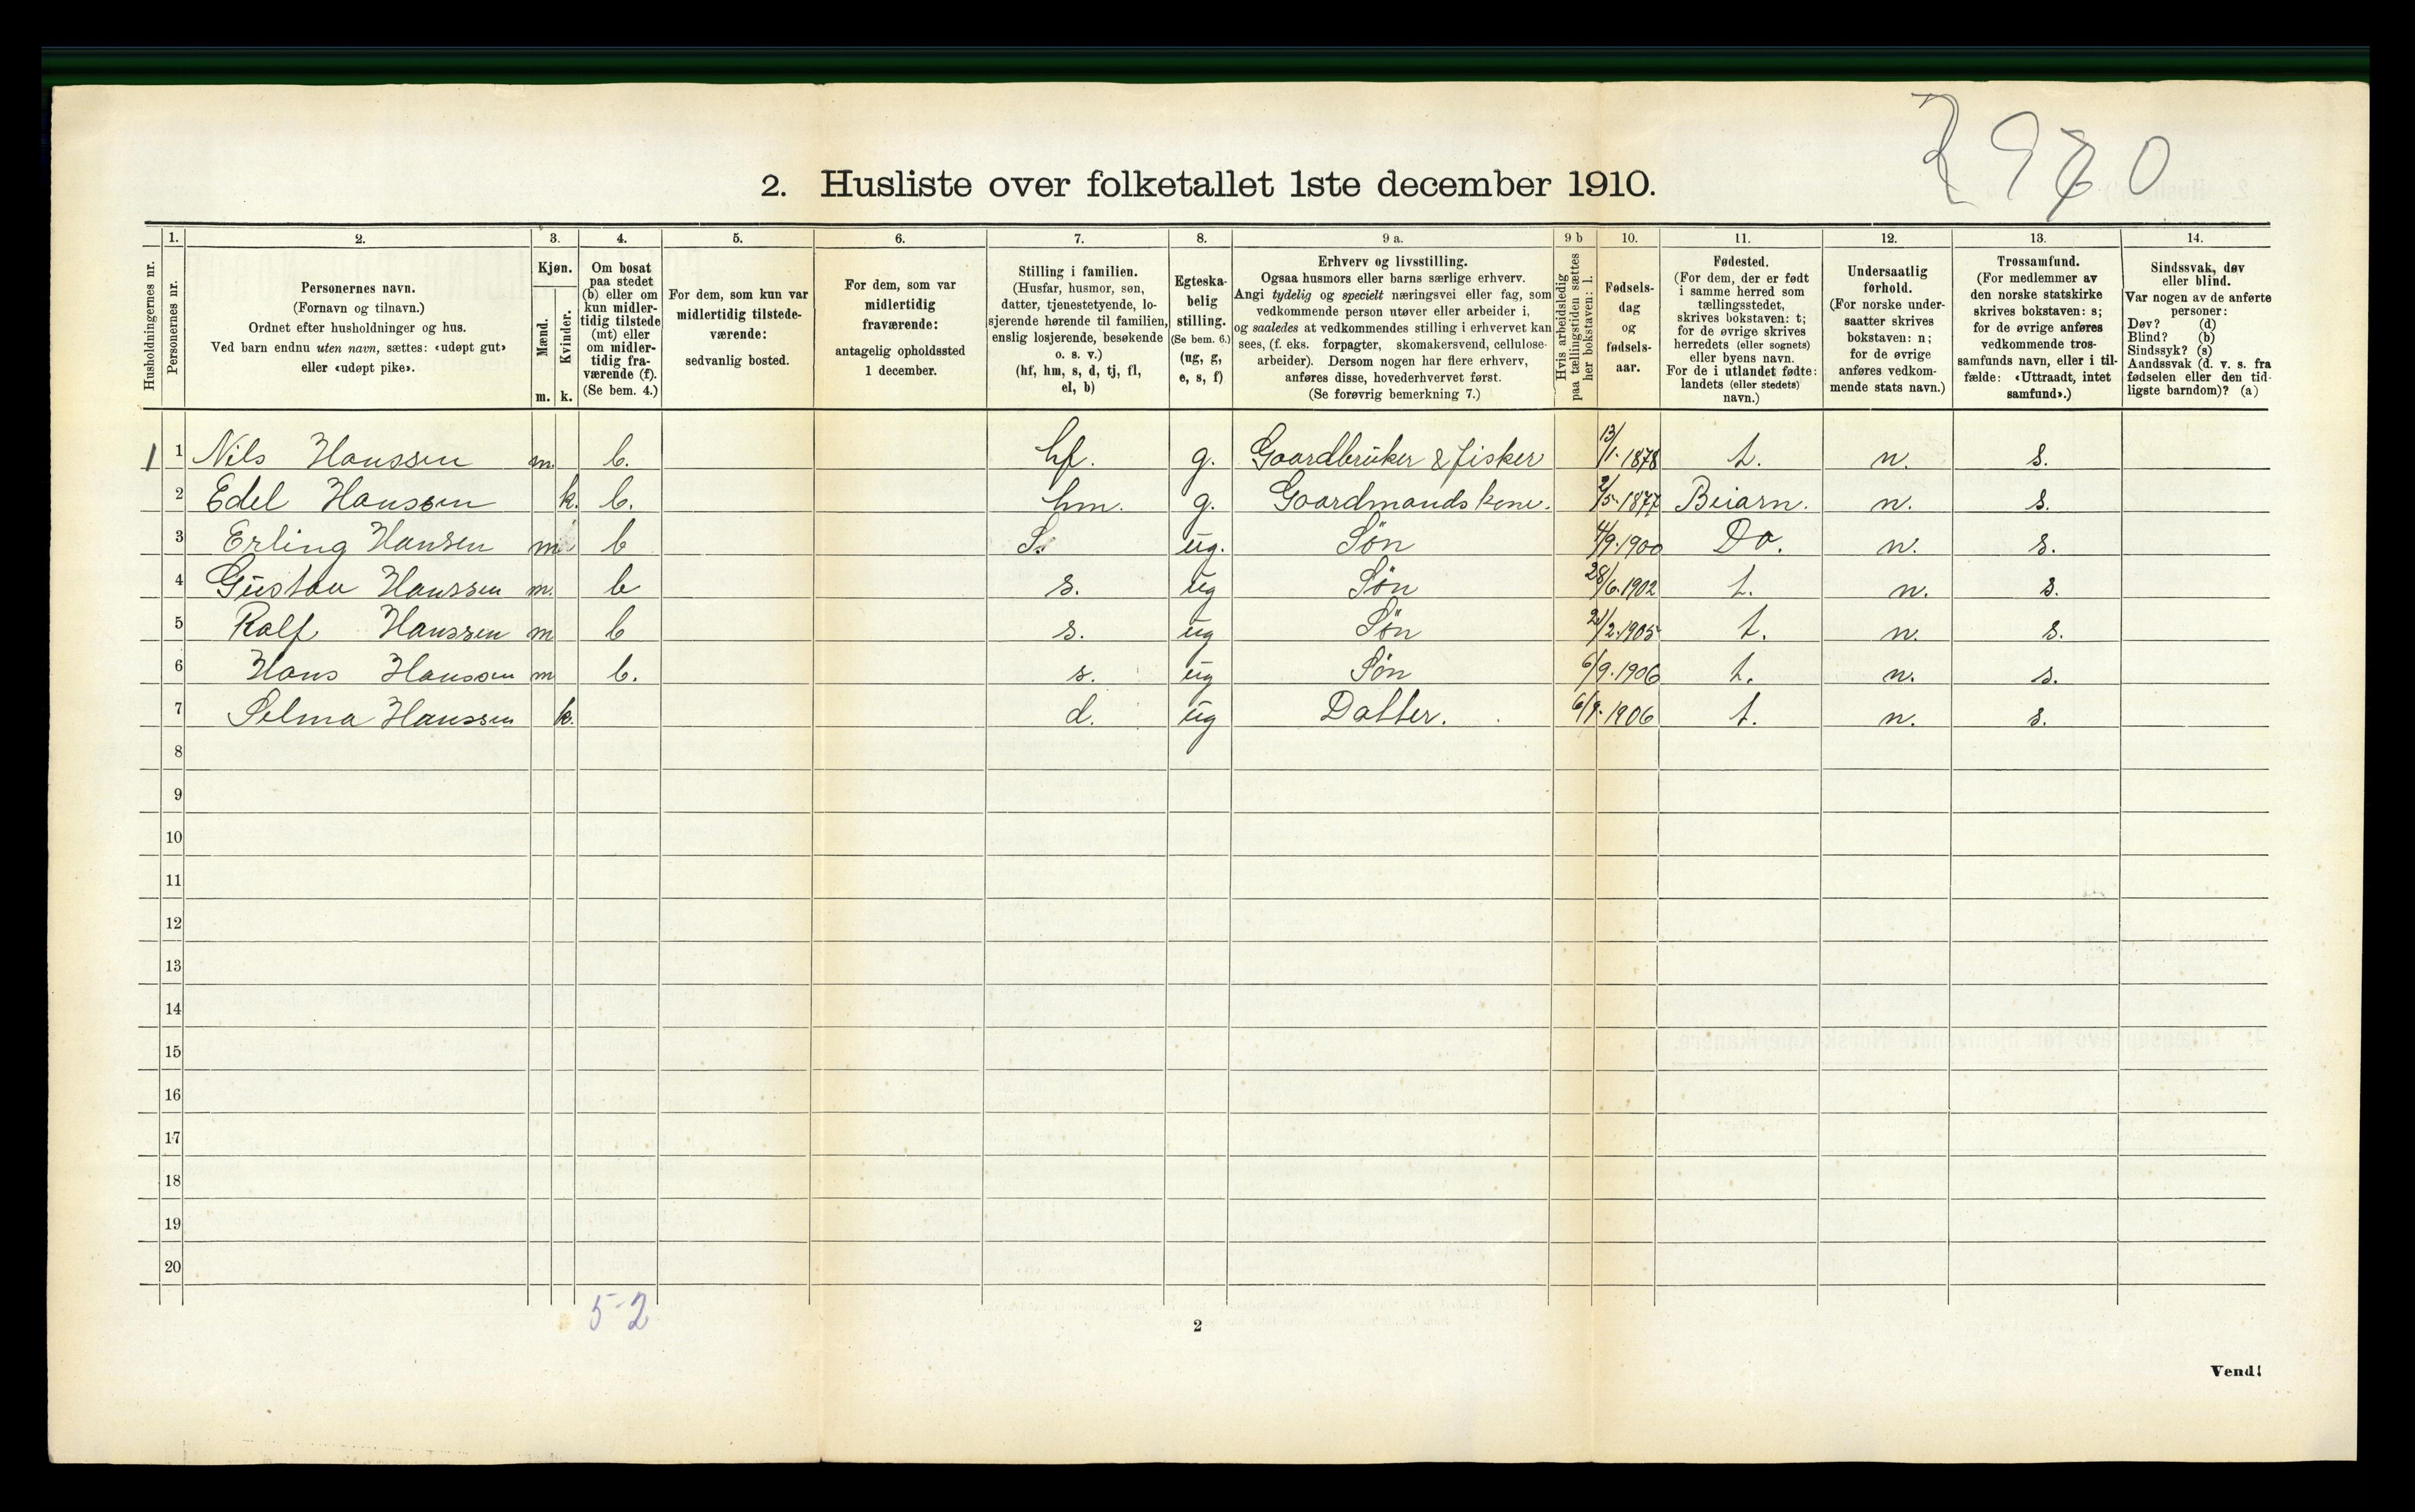 2970
2. Husliste over folketallet 1ste december 1910.
1. 2. 3. 4. 5. 6. 7. 8. 9 a. 9 b 10. 11. 12. 13. 14.
Husholdningernes nr.
Personernes nr.
Personernes navn.
(Fornavn og tilnavn.)
Ordnet efter husholdninger og hus.
Ved barn endnu uten navn, sættes: «udøpt gut»
eller «udøpt pike».
Kjøn.
Mænd.
Kvinder.
m. k.
Om bosat
paa stedet
(b) eller om
kun midler-
tidig tilstede
(mt) eller
om midler-
tidig fra-
værende (f).
(Se bem. 4.)
For dem, som kun var
midlertidig tilstede-
værende:
sedvanlig bosted.
For dem, som var
midlertidig
fraværende:
antagelig opholdssted
1 december.
Stilling i familien.
(Husfar, husmor, søn,
datter, tjenestetyende, lo-
sjerende hørende til familien,
enslig losjerende, besøkende
o. s. v.)
(hf, hm, s, d, tj, fl,
el, b)
Egteska-
belig
stilling.
(Se bem. 6.)
(ug, g,
e, s, f)
Erhverv og livsstilling.
Ogsaa husmors eller barns særlige erhverv.
Angi tydelig og specielt næringsvei eller fag, som
vedkommende person utøver eller arbeider i,
og saaledes at vedkommendes stilling i erhvervet kan
sees, (f. eks. forpagter, skomakersvend, cellulose-
arbeider). Dersom nogen har flere erhverv,
anføres disse, hovederhvervet først.
(Se forøvrig bemerkning 7.)
Hvis arbeidsledig
paa tællingstiden sættes
her bokstaven: l.
Fødsels-
dag
og
fødsels-
aar.
Fødested.
(For dem, der er født
i samme herred som
tællingsstedet,
skrives bokstaven: t;
for de øvrige skrives
herredets (eller sognets)
eller byens navn.
For de i utlandet fødte:
landets (eller stedets)
navn.)
Undersaatlig
forhold.
(For norske under-
saatter skrives
bokstaven: n;
for de øvrige
anføres vedkom-
mende stats navn.)
Trossamfund.
(For medlemmer av
den norske statskirke
skrives bokstaven: s;
for de øvrige anføres
vedkommende tros-
samfunds navn, eller i til-
fælde: «Uttraadt, intet
samfund».)
Sindssvak, døv
eller blind.
Var nogen av de anførte
personer:
Døv? (d)
Blind? (b)
Sindssyk? (s)
Aandssvak (d. v. s. fra
fødselen eller den tid-
ligste barndom)? (a)
1 1 Nils Hanssen m. b. hf. g. Gaardbruker & fisker 13/1.1878 t. n. s.
2 Edel Hanssen k. b. hm. g. Gaardmandskone. 2/5.1877 Beiarn. n. s.
3 Erling Hansen m b S. ug. Søn 4/9.1900 Do. n. s.
4 Gustav Hanssen m. b s. ug Søn 28/6.1902 t. n. s.
5 Ralf Hanssen m b s. ug Søn 21/2.1905 t. n. s.
6 Hans Hanssen m b. s. ug Søn 6/9.1906 t. n. s.
7 Selma Hanssen k. d. ug Datter. 6/9.1906 t. n. s.
8
9
10
11
12
13
14
15
16
17
18
19
20
5-2
2
Vend!